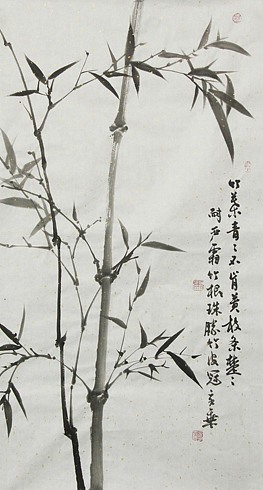 竹叶青々不肯黄枝条楚々
耐严霜竹根珠胜竹皮冠